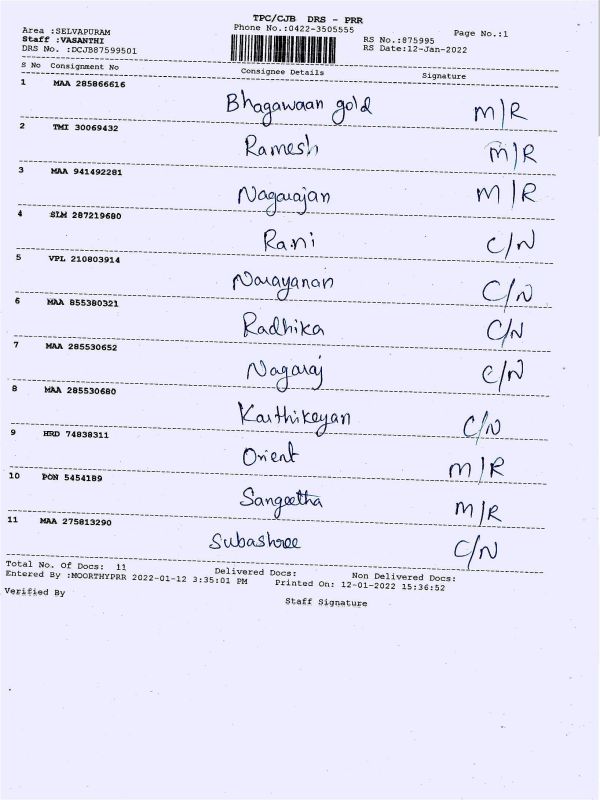 TPC/CJB DRS - PRR
Area :SELVAPURAM Phone No.:0422-3505555 Page No.:1
Staff :VASANTHI RS No.:875995
DRS No. :DCJB87599501 RS Date:12-Jan-2022
S No Consignment No Consignee Details Signature
1 MAA 285866616 Bhagawaan gold M/R
2 TMI 30069432 Ramesh M/R
3 MAA 941492281 Nagarajan M/R
4 SLM 287219680 Rani C/N
5 VPL 210803914 Narayanan C/N
6 MAA 855380321 Radhika C/N
7 MAA 285530652 Nagaraj C/N
8 MAA 285530680 Karthikeyan C/N
9 HRD 74838311 Orient M/R
10 PON 5454189 Sangeetha M/R
11 MAA 275813290 Subashree C/N
Total No. Of Docs: 11 Delivered Docs: Non Delivered Docs:
Entered By :MOORTHYPRR 2022-01-12 3:35:01 PM Printed On: 12-01-2022 15:36:52
Verified By Staff Signature